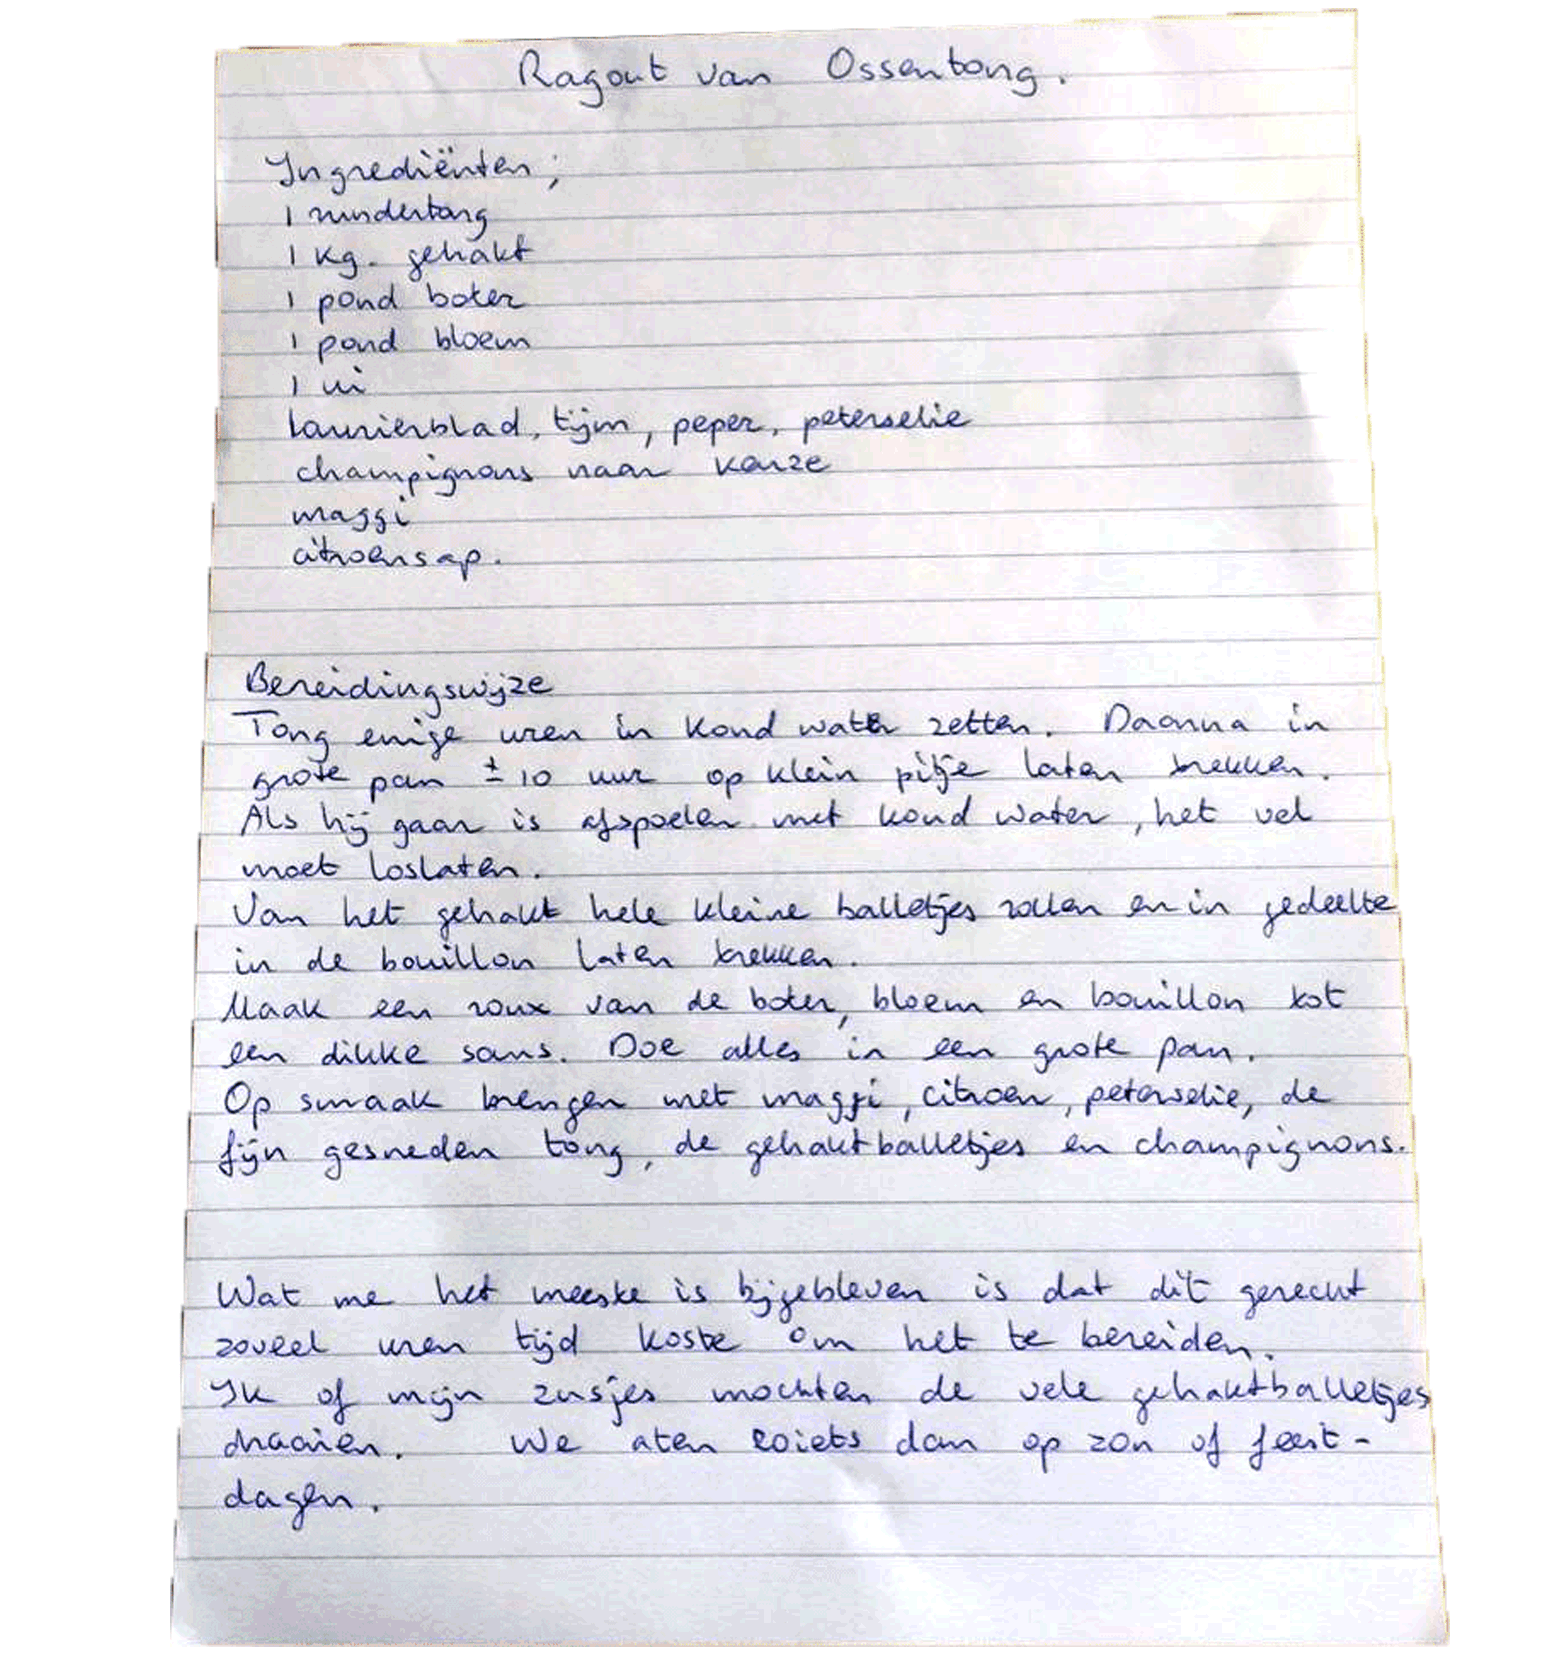 Ragout van Ossentong.
Ingrediënten;
1 rundertong
1 kg. gehakt
1 pond boter
1 pond bloem
1 ui
laurierblad, tijm, peper, peterselie
champignons naar keuze
maggi
citroensap.
Bereidingswijze
Tong enige uren in koud water zetten. Daarna in
grote pan ± 10 uur op klein pitje laten trekken.
Als hij gaar is afspoelen met koud water, het vel
moet loslaten.
Van het gehakt hele kleine balletjes rollen en in gedeelte
in de bouillon laten trekken.
Maak een roux van de boter, bloem en bouillon tot
een dikke saus. Doe alles in een grote pan.
Op smaak brengen met maggi, citroen, peterselie, de
fijn gesneden tong, de gehaktballetjes en champignons.
Wat me het meeste is bijgebleven is dat dit gerecht
zoveel uren tijd koste om het te bereiden.
Ik of mijn zusjes mochten de vele gehaktballetjes
draaien. We aten zoiets dan op zon of feest-
dagen.